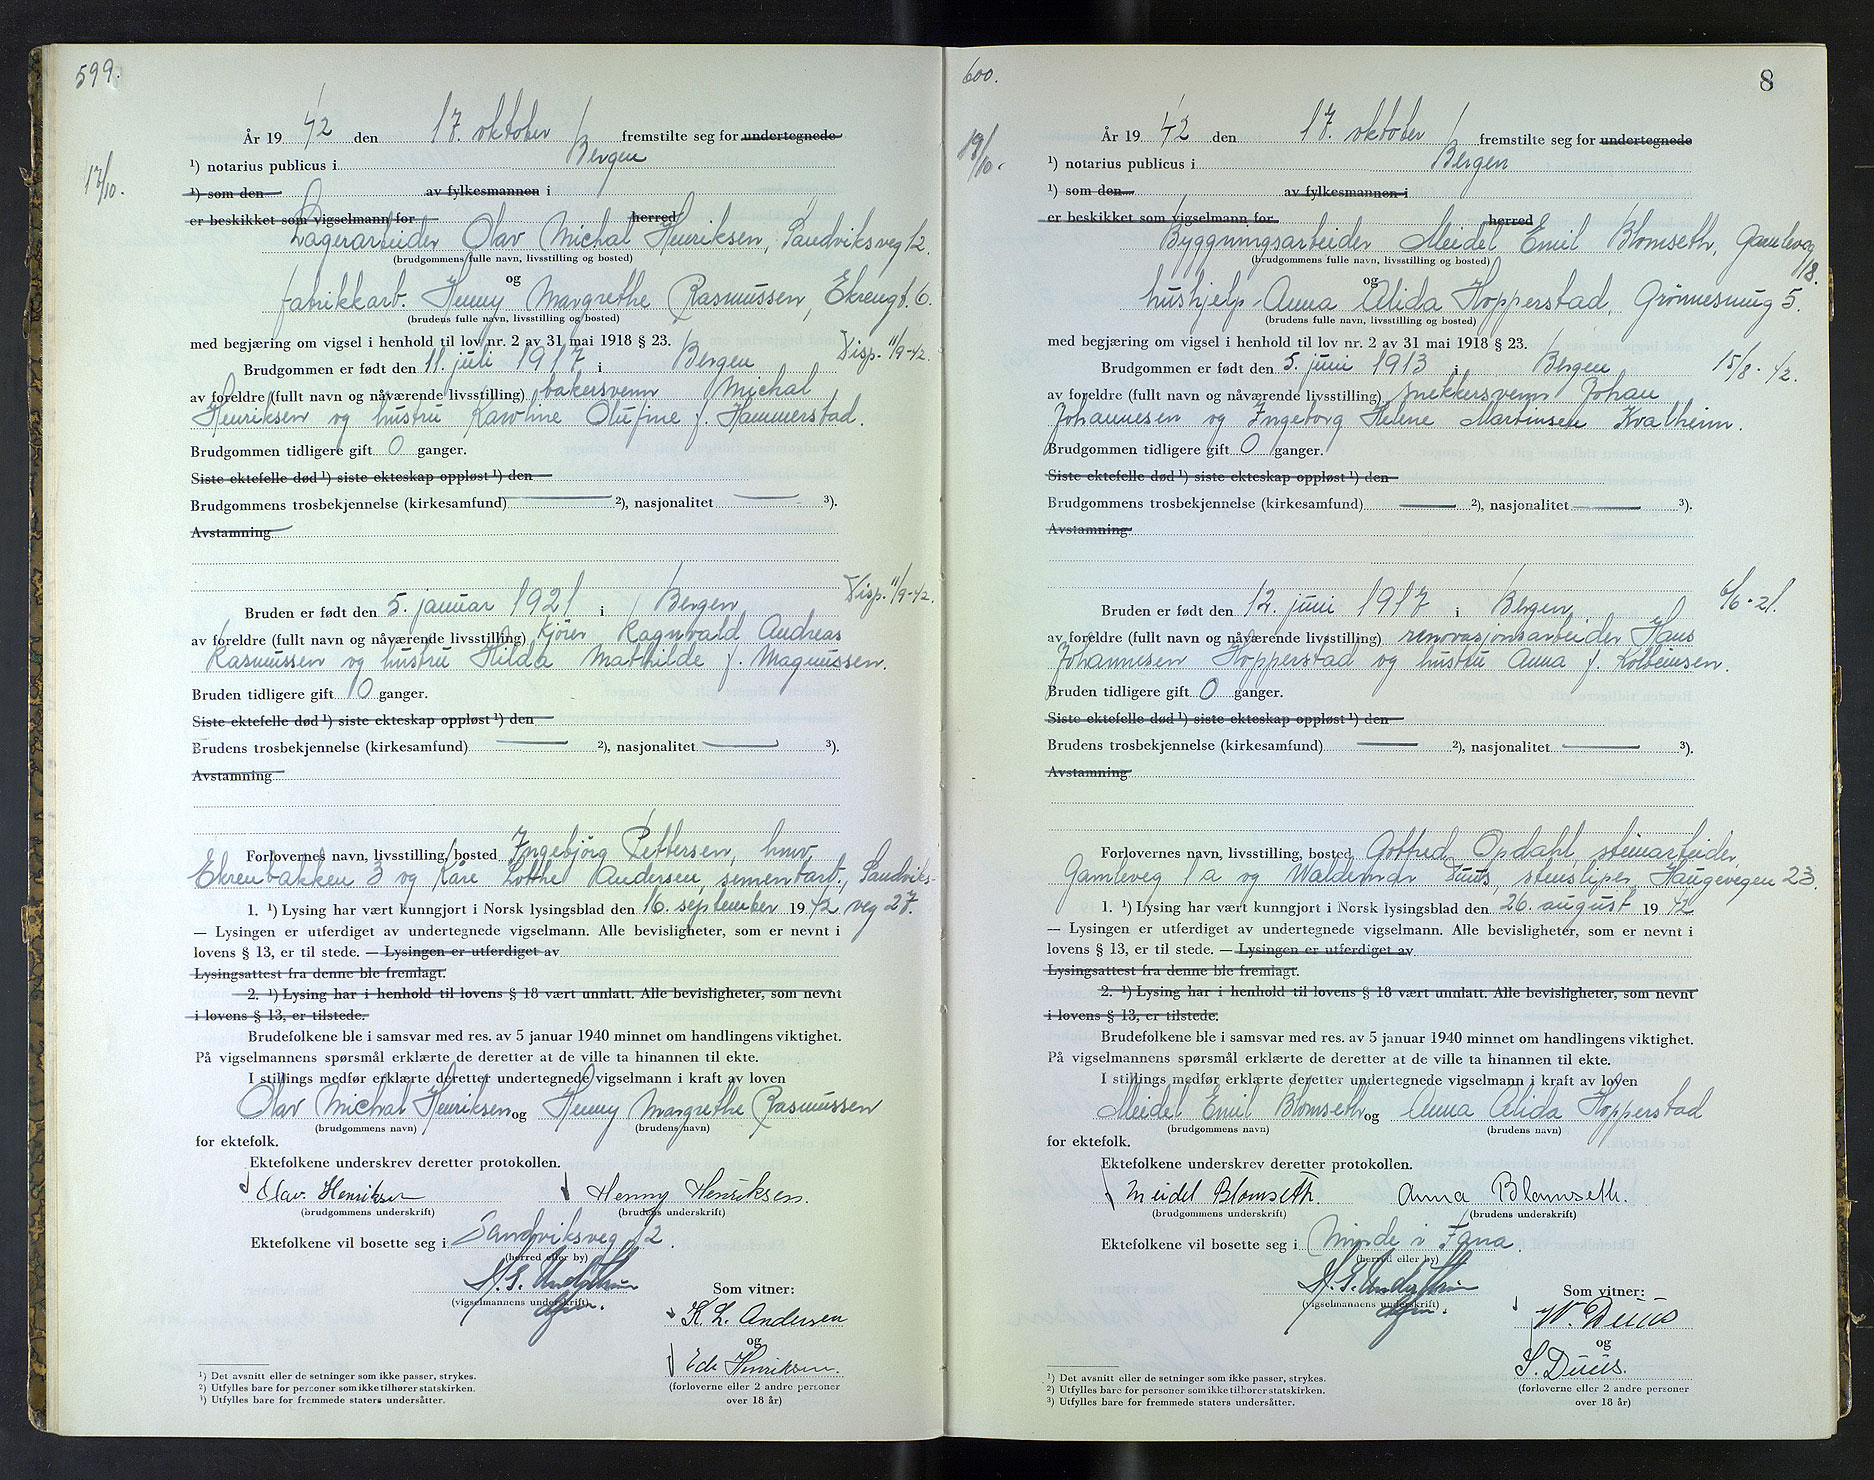 599.
År 19 42 den 17. oktober fremstilte seg for undertegnede
17/10.
¹) notarius publicus i Bergen
¹) som den av fylkesmannen i
er beskikket som vigselmann for herred
Lagerarbeider Olav Michal Henriksen, Sandviksveg 12.
(brudgommens fulle navn, livsstilling og bosted)
og
fabrikkarb. Henny Margrethe Rasmussen, Ekrengt. 6.
(brudens fulle navn, livsstilling og bosted)
med begjæring om vigsel i henhold til lov nr. 2 av 31 mai 1918 § 23.
Brudgommen er født den 11. juli 1917 i Bergen Disp. 11/9-42.
av foreldre (fullt navn og nåværende livsstilling) bakersvenn Michal
Henriksen og hustru Karoline Olufine f. Hammerstad.
Brudgommen tidligere gift 0 ganger.
Siste ektefelle død ¹) siste ekteskap oppløst ¹) den
Brudgommens trosbekjennelse (kirkesamfund) ²), nasjonalitet ³).
Avstamning
Bruden er født den 5. januar 1921 i Bergen Disp. 11/9-42.
av foreldre (fullt navn og nåværende livsstilling) kjører Ragnvald Andreas
Rasmussen og hustru Hilda Mathilde f. Magnussen.
Bruden tidligere gift 0 ganger.
Siste ektefelle død ¹) siste ekteskap oppløst ¹) den
Brudens trosbekjennelse (kirkesamfund) ²), nasjonalitet ³).
Avstamning
Forlovernes navn, livsstilling, bosted Ingebjörg Pettersen, hmv,
Ekrenbakken 3 og Kåre Lothe Andersen, sementarb., Sandviks-
1. ¹) Lysing har vært kunngjort i Norsk lysingsblad den 16. september 19 42 veg 27.
— Lysingen er utferdiget av undertegnede vigselmann. Alle bevisligheter, som er nevnt i
lovens § 13, er til stede. — Lysingen er utferdiget av
Lysingsattest fra denne ble fremlagt.
2. ¹) Lysing har i henhold til lovens § 18 vært unnlatt. Alle bevisligheter, som nevnt
i lovens § 13, er tilstede.
Brudefolkene ble i samsvar med res. av 5 januar 1940 minnet om handlingens viktighet.
På vigselmannens spørsmål erklærte de deretter at de ville ta hinannen til ekte.
I stillings medfør erklærte deretter undertegnede vigselmann i kraft av loven
Olav Michal Henriksen og Henny Margrethe Rasmussen
(brudgommens navn) (brudens navn)
for ektefolk.
Ektefolkene underskrev deretter protokollen.
Olav. Henriksen Henny Henriksen.
(brudgommens underskrift) (brudens underskrift)
Ektefolkene vil bosette seg i Sandviksveg 12.
(herred eller by)
(vigselmannens underskrift)
Som vitner:
K. L. Andersen
og
Henriksen.
(forloverne eller 2 andre personer
over 18 år)
¹) Det avsnitt eller de setninger som ikke passer, strykes.
²) Utfylles bare for personer som ikke tilhører statskirken.
³) Utfylles bare for fremmede staters undersåtter.
600.
8
År 19 42 den 17. oktober fremstilte seg for undertegnede
19/10.
¹) notarius publicus i Bergen
¹) som den av fylkesmannen i
er beskikket som vigselmann for herred
Byggningsarbeider Meidel Emil Blomseth, Gamleveg
(brudgommens fulle navn, livsstilling og bosted)
og
hushjelp Anna Alida Hopperstad, Grönnesmug 5.
(brudens fulle navn, livsstilling og bosted)
med begjæring om vigsel i henhold til lov nr. 2 av 31 mai 1918 § 23.
Brudgommen er født den 5. juni 1913 i Bergen 15/8-42.
av foreldre (fullt navn og nåværende livsstilling) snekkersvenn Johan
Johannesen og Ingeborg Helene Martinsen Kvalheim.
Brudgommen tidligere gift 0 ganger.
Siste ektefelle død ¹) siste ekteskap oppløst ¹) den
Brudgommens trosbekjennelse (kirkesamfund) ²), nasjonalitet ³).
Avstamning
Bruden er født den 12. juni 1917 i Bergen
av foreldre (fullt navn og nåværende livsstilling) renovasjonsarbeider Hans
Johannesen Hopperstad og hustru Anna f. Kolbeinsen.
Bruden tidligere gift 0 ganger.
Siste ektefelle død ¹) siste ekteskap oppløst ¹) den
Brudens trosbekjennelse (kirkesamfund) ²), nasjonalitet ³).
Avstamning
Forlovernes navn, livsstilling, bosted Gotfred Opdahl, steinarbeider,
Gamleveg 1a og Waldemar Duus, stensliper, Haugevegen 23.
1. ¹) Lysing har vært kunngjort i Norsk lysingsblad den 26. august 19 42
— Lysingen er utferdiget av undertegnede vigselmann. Alle bevisligheter, som er nevnt i
lovens § 13, er til stede. — Lysingen er utferdiget av
Lysingsattest fra denne ble fremlagt.
2. ¹) Lysing har i henhold til lovens § 18 vært unnlatt. Alle bevisligheter, som nevnt
i lovens § 13, er tilstede.
Brudefolkene ble i samsvar med res. av 5 januar 1940 minnet om handlingens viktighet.
På vigselmannens spørsmål erklærte de deretter at de ville ta hinannen til ekte.
I stillings medfør erklærte deretter undertegnede vigselmann i kraft av loven
Meidel Emil Blomseth og Anna Alida Hopperstad
(brudgommens navn) (brudens navn)
for ektefolk.
Ektefolkene underskrev deretter protokollen.
Meidel Blomseth. Anna Blomseth.
(brudgommens underskrift) (brudens underskrift)
Ektefolkene vil bosette seg i Minde i Fana.
(herred eller by)
(vigselmannens underskrift)
Som vitner:
W. Duus
og
S. Duus.
(forloverne eller 2 andre personer
over 18 år)
¹) Det avsnitt eller de setninger som ikke passer, strykes.
²) Utfylles bare for personer som ikke tilhører statskirken.
³) Utfylles bare for fremmede staters undersåtter.